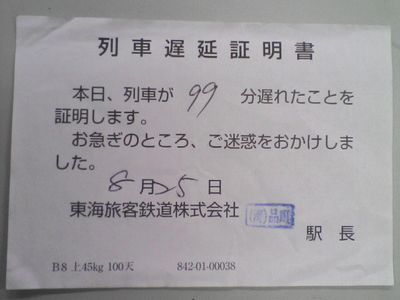 列車遅延証明書
本日、列車が 99 分遅れたことを
証明します。
お急ぎのところ、ご迷惑をおかけしま
した。
8月25日
東海旅客鉄道株式会社 品川
駅 長
B8 上45kg 100天 842-01-00038